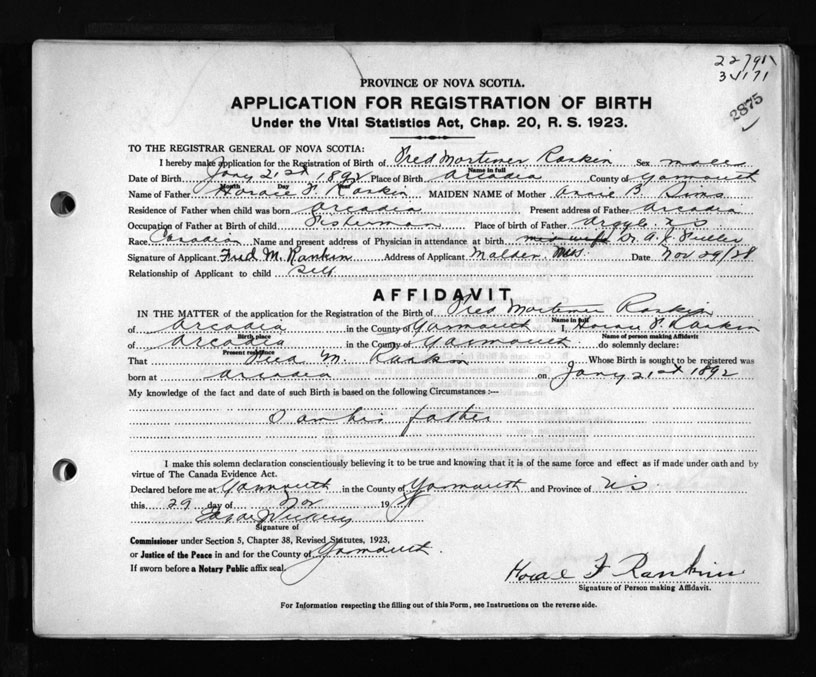 22791
3 171
2875
PROVINCE OF NOVA SCOTIA.
APPLICATION FOR REGISTRATION OF BIRTH
Under the Vital Statistics Act, Chap. 20, R. S. 1923.
TO THE REGISTRAR GENERAL OF NOVA SCOTIA:
I hereby make application for the Registration of Birth of Fred Mortimer Rankin Sex
Name in full
Date of Birth Jany 21st 1892 Place of Birth Arcadia County of Yarmouth
Month Day Year
Name of Father Horace F. Rankin MAIDEN NAME of Mother Annie B. Sims
Residence of Father when child was born Arcadia Present address of Father Arcadia
Occupation of Father at Birth of child Fisherman Place of birth of Father Argyle
Race Canadian Name and present address of Physician in attendance at birth midwife Dr. A. J. Fuller
Signature of Applicant Fred M. Rankin Address of Applicant Malden Mass Date Nov 29/28
Relationship of Applicant to child Self
AFFIDAVIT
IN THE MATTER of the application for the Registration of the Birth of Fred Mortimer Rankin
Name in full
of Arcadia in the County of Yarmouth I, Horace F. Rankin
Birth place Name of person making Affidavit
of Arcadia in the County of Yarmouth do solemnly declare:
Present residence
That Fred M. Rankin Whose Birth is sought to be registered was
born at Arcadia on Jany 21st 1892
My knowledge of the fact and date of such Birth is based on the following Circumstances :—
I am his father
I make this solemn declaration conscientiously believing it to be true and knowing that it is of the same force and effect as if made under oath and by
virtue of The Canada Evidence Act.
Declared before me at Yarmouth in the County of Yarmouth and Province of NS
this 29 day of Nov 19
Signature of
Commissioner under Section 5, Chapter 38, Revised Statutes, 1923,
or Justice of the Peace in and for the County of Yarmouth.
If sworn before a Notary Public affix seal.
Horace F Rankin
Signature of Person making Affidavit.
For Information respecting the filling out of this Form, see Instructions on the reverse side.